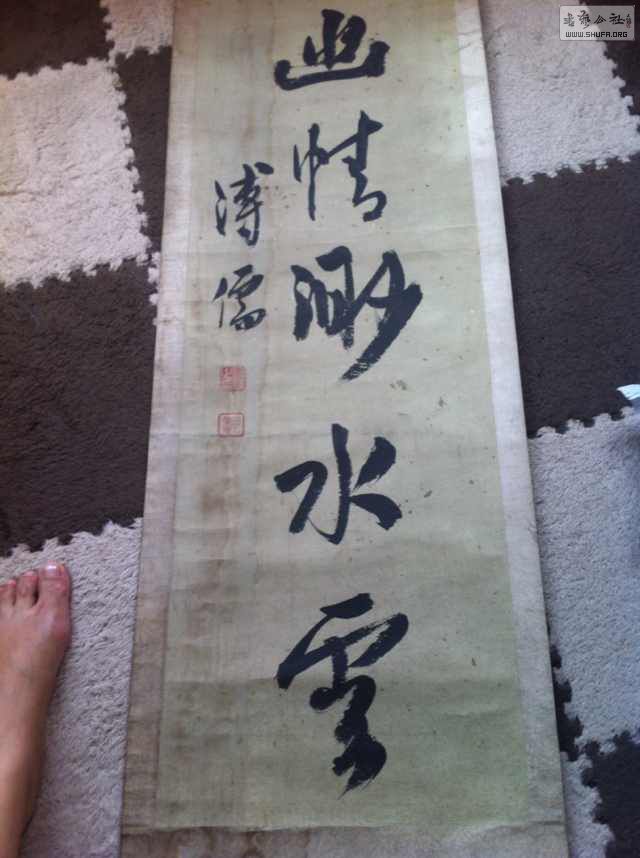 幽情渺水雲
溥儒
书艺公社
WWW.SHUFA.ORG